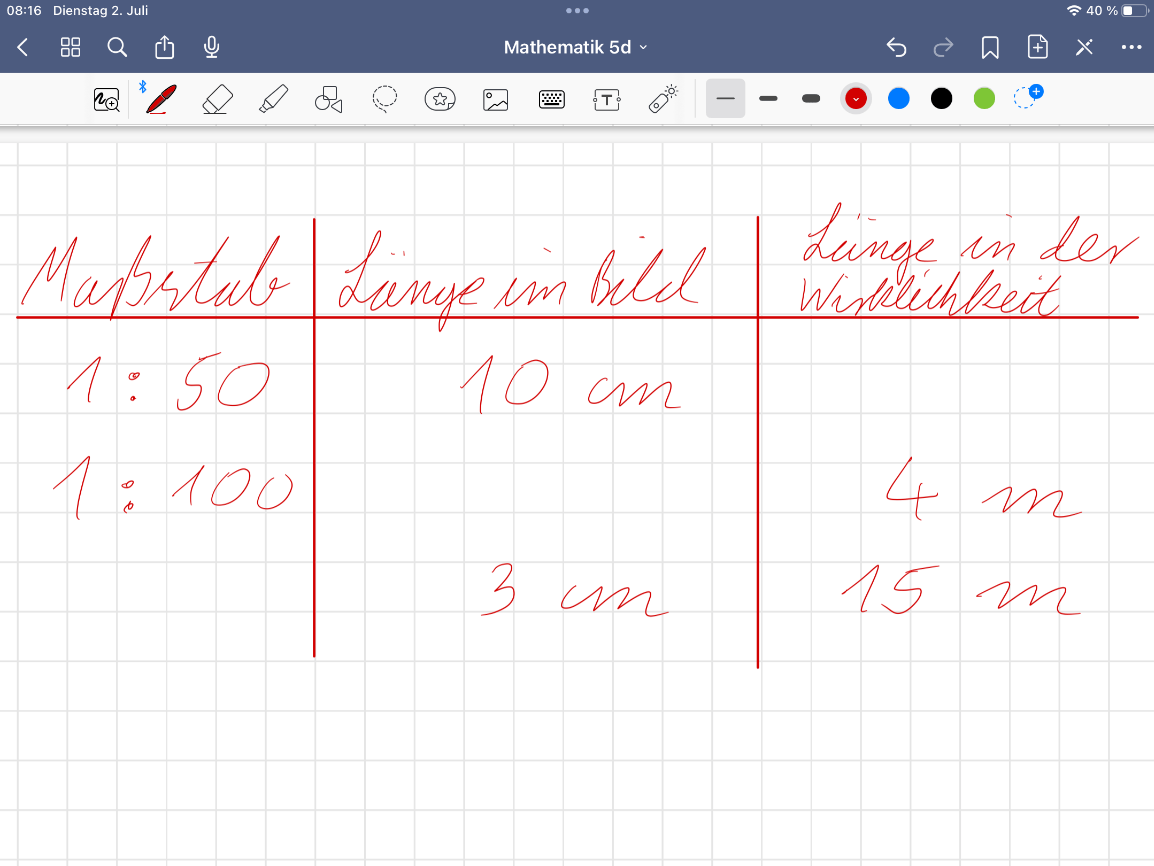 08:16 Dienstag 2. Juli
40 %
Mathematik 5d
T
Maßstab Länge im Bild Länge in der
Wirklichkeit
1 : 50 10 cm
1 : 100 4 m
3 cm 15 m